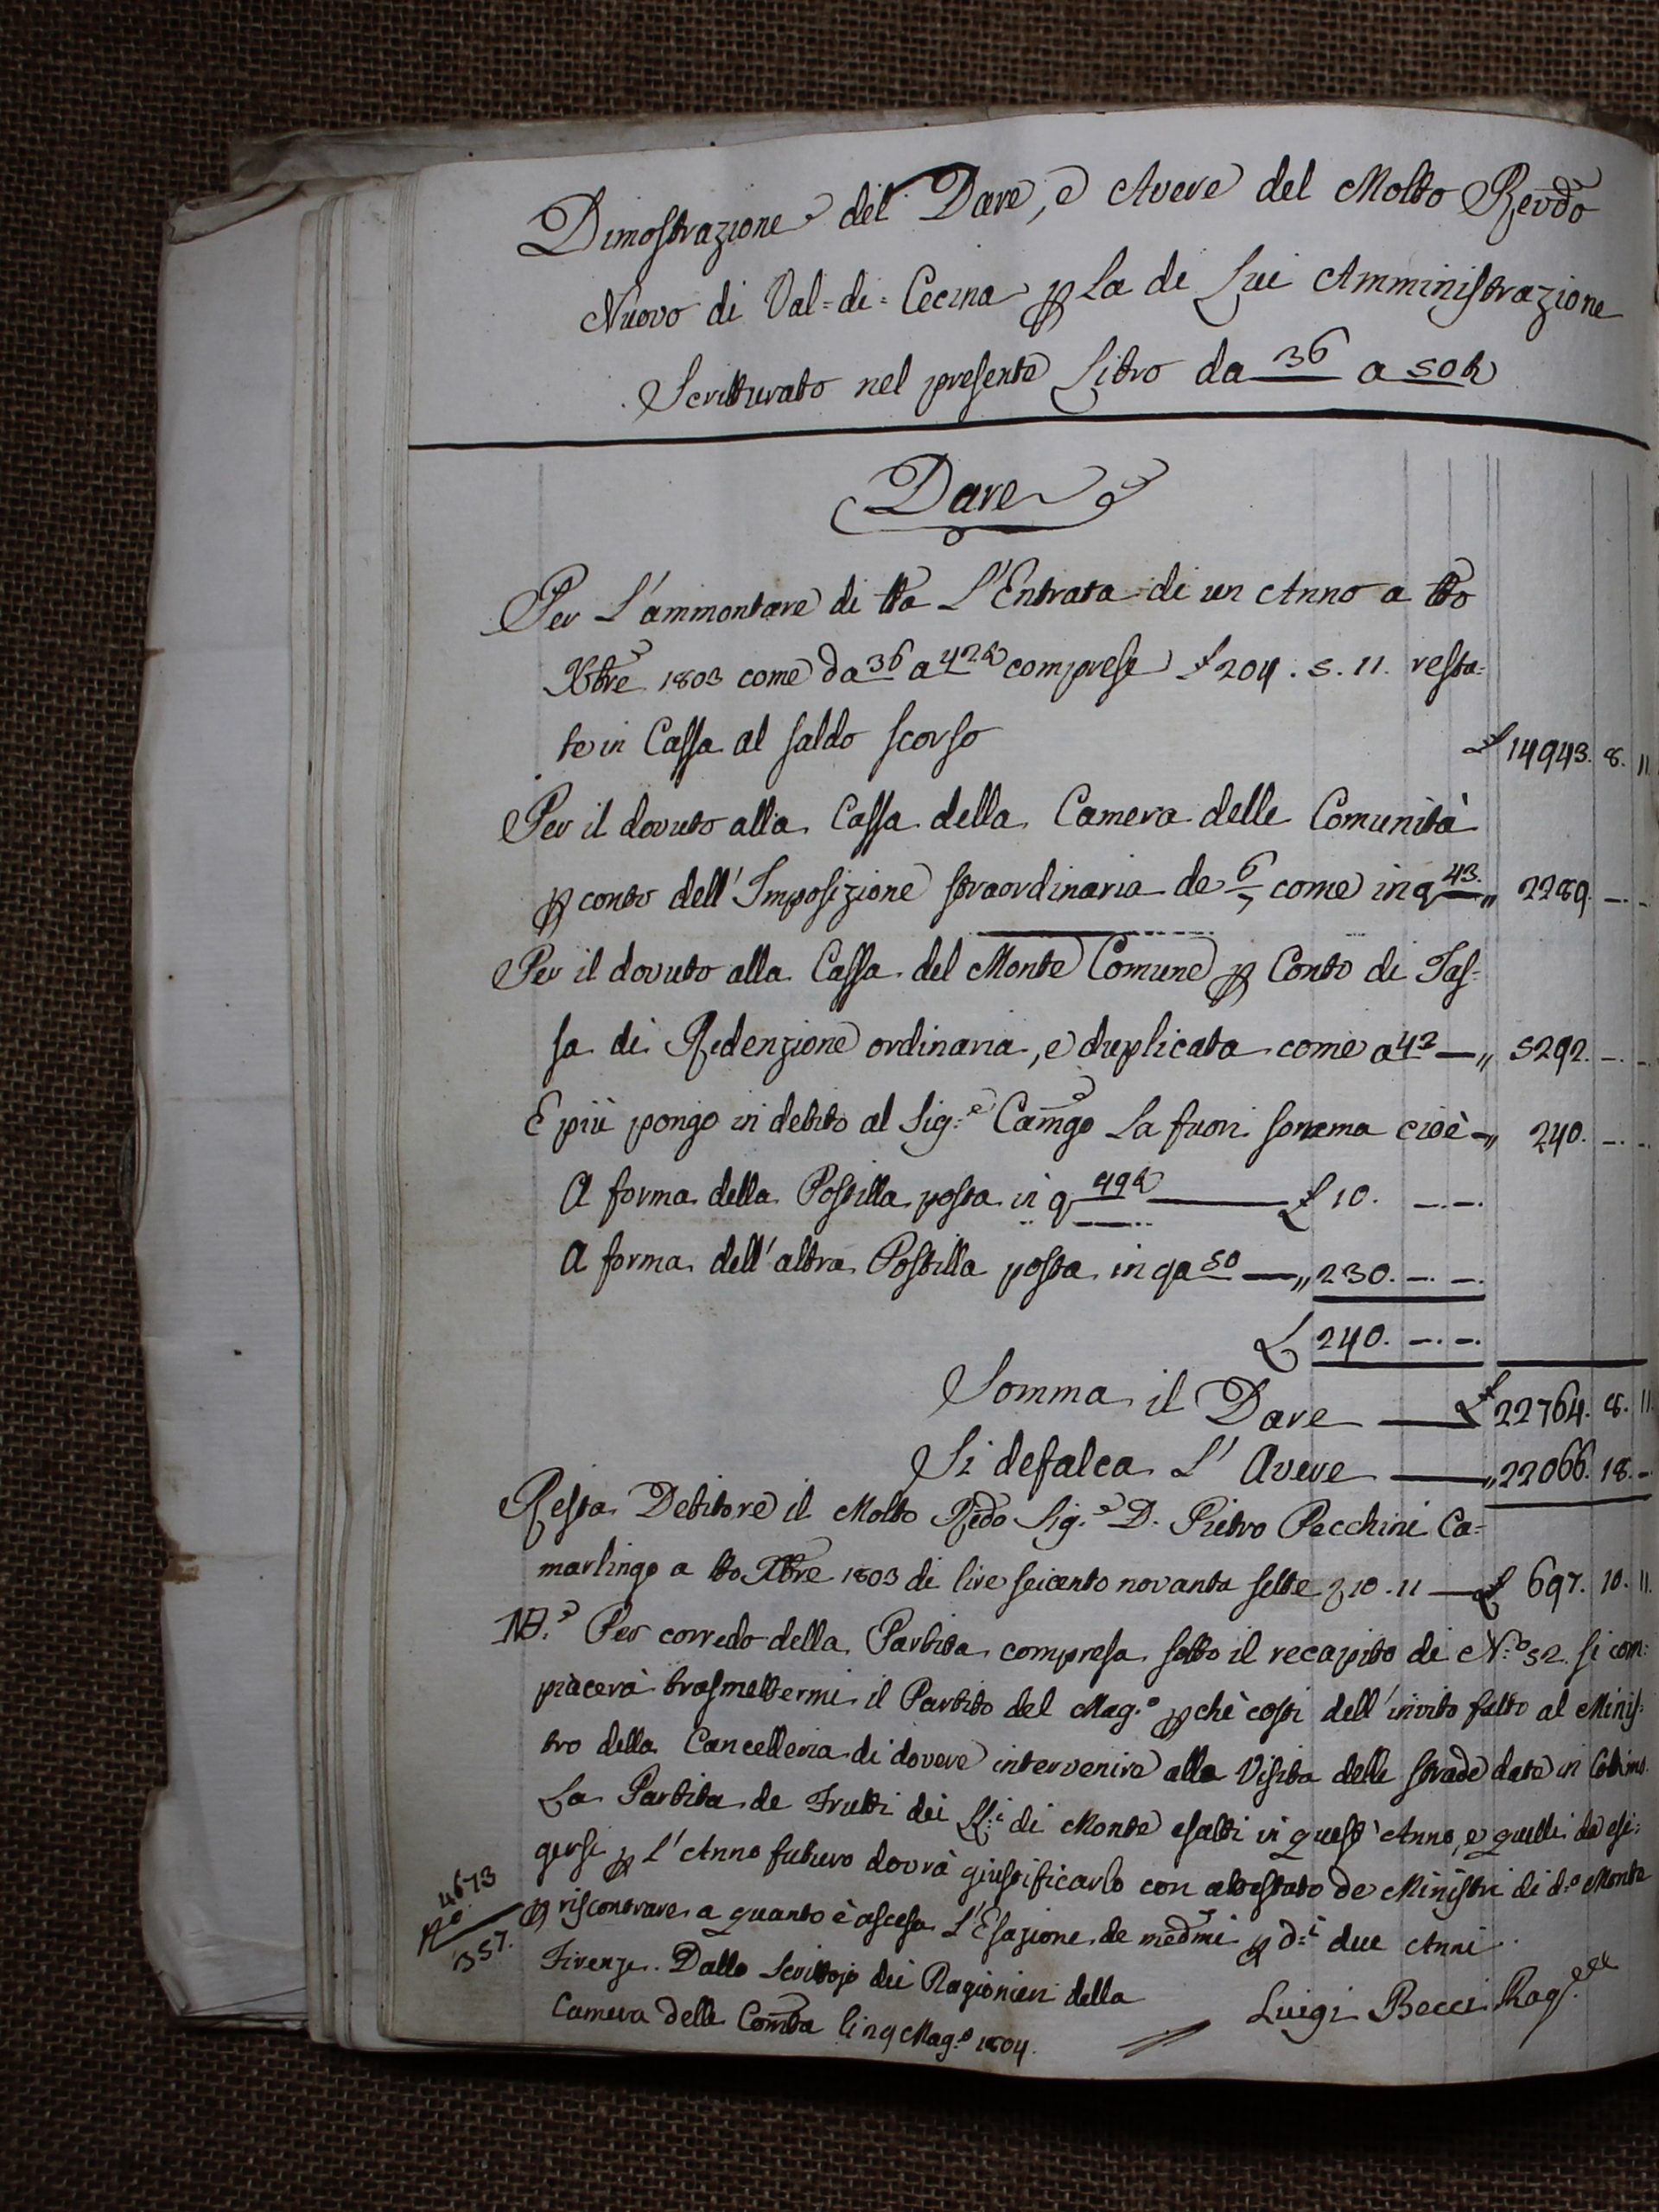 Dimostrazione del Dare, e Avere del Molto Revdo
Nuovo di Val=di=Cecina p La di Lui Amministrazione
Scritturato nel presente Libro da 36 a 50
Dare
Per L'ammontare di tta L'Entrata di un Anno a tto
Xbre 1803 come da 36 a 42 comprese £ 204. 5. 11. resta=
te in Cassa al saldo scorso £ 14943. 8. 11.
Per il dovuto alla Cassa della Camera delle Comunità
p conto dell'Imposizione straordinaria de 6/7 come in q 43. „ 2289. —. —
Per il dovuto alla Cassa del Monte Comune p Conto di Tas=
sa di Redenzione ordinaria, e duplicata come a 43 —„ 5292. —. —
E più pongo in debito al Sig.e Camgo La fuori somma cioè —„ 240. —. —.
A forma della Postilla posta in q 49 — £ 10. —. —.
A forma dell'altra Postilla posta in qa 50 —„ 230. —. —.
£ 240. —. —.
Somma il Dare — £ 22764. 8. 11.
Si defalca L'Avere — „ 22066. 18. —
Resta Debitore il Molto Redo Sig.e D. Pietro Pacchini Ca=
marlingo a tto Xbre 1803 di lire seicento novanta sette 10. 11 — £ 697. 10. 11.
NB.e Per corredo della Partita compresa sotto il recapito di N.o 52. si com=
piacerà trasmettermi il Partito del Mag.o pchè costi dell'invito fatto al Minis=
tro della Cancelleria di dovere intervenire alla Visita delle strade date in Cottimo.
La Partita de Frutti dei LL.i di Monte esatti in quest'Anno, e quelli da esi=
gersi p L'Anno futuro dovrà giustificarlo con attestato de Ministri di d.o Monte
p riscontrare a quanto è ascesa L'Esazione de medmi p d.i due Anni.
4673
No.
357.
Firenze. Dallo Scrittojo dei Ragionieri della
Camera delle Comta li 29 Mag.o 1804.
Luigi Becci Rag.re